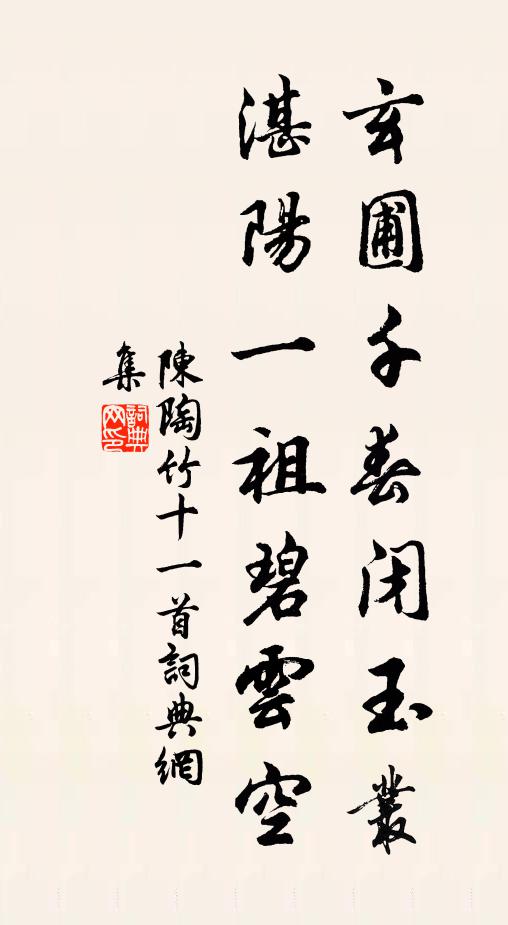 玄圃千春闭玉叢
湛陽一祖碧雲空
陳陶竹十一首詞典網
集
詞典网印